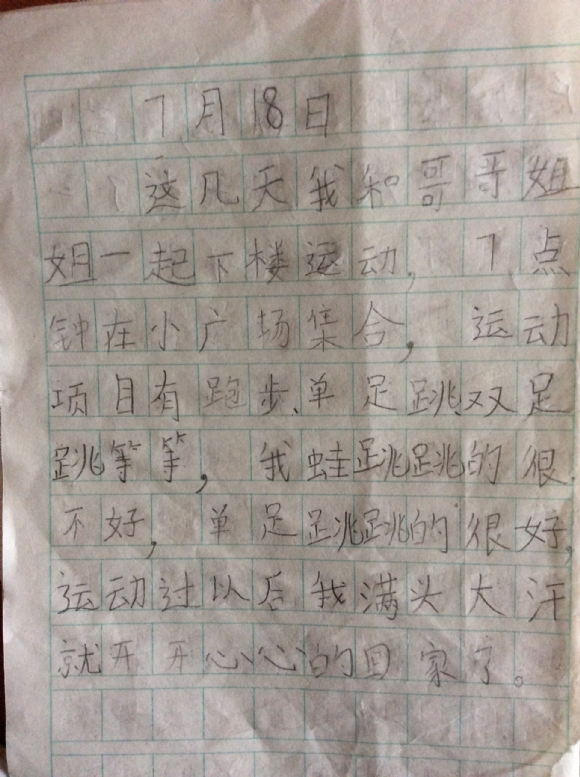 7月18日
这几天我和哥哥姐
姐一起下楼运动,7点
钟在小广场集合,运动
项目有跑步、单足跳、双足
跳等等,我蛙跳跳的很
不好,单足跳跳的很好,
运动过以后我满头大汗
就开开心心的回家了。